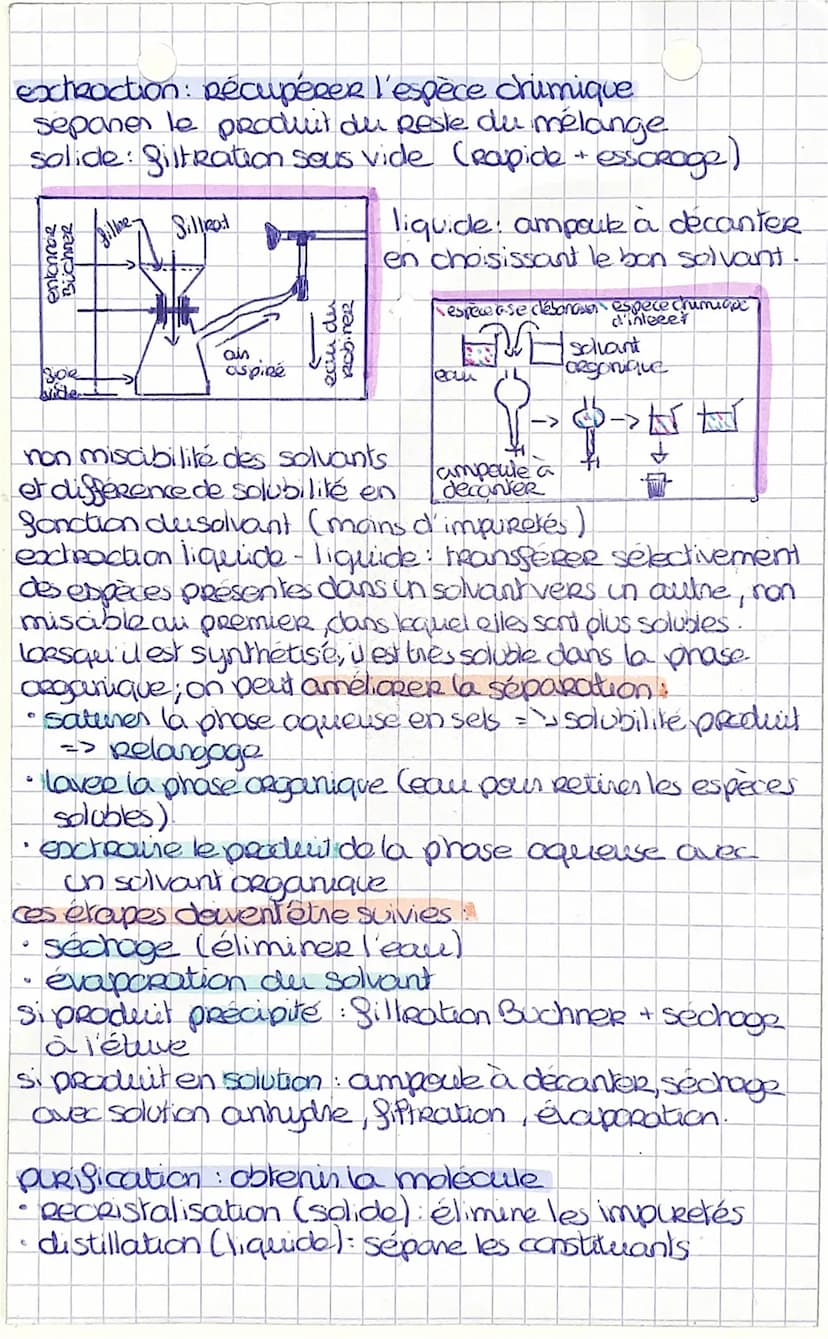 extraction : récupérer l'espèce chimique
séparer le produit du reste du mélange
solide : filtration sous vide (rapide + essorage)
entonnoir
Büchner
filtre
filtrat
air
aspiré
eau du
robinet
vide
liquide : ampoule à décanter
en choisissant le bon solvant.
espèce chimique
d'intéret
eau
solvant
organique
ampoule à
décanter
non miscibilité des solvants
et différence de solubilité en
fonction du solvant (moins d'impuretés)
extraction liquide - liquide : transférer sélectivement
des espèces présentes dans un solvant vers un autre, non
miscible au premier, dans lequel elles sont plus solubles.
lorsqu'il est synthétisé, il est très soluble dans la phase
organique ; on peut améliorer la séparation :
• saturer la phase aqueuse en sels => ↘ solubilité produit
=> relargage
• laver la phase organique (eau pour retirer les espèces
solubles).
• extraire le produit de la phase aqueuse avec
un solvant organique
ces étapes doivent être suivies :
• séchage (éliminer l'eau)
• évaporation du solvant
si produit précipité : filtration Buchner + séchage
à l'étuve
si produit en solution : ampoule à décanter, séchage
avec solution anhydre, filtration, évaporation.
purification : obtenir la molécule
• recristalisation (solide) : élimine les impuretés
• distillation (liquide) : sépare les constituants